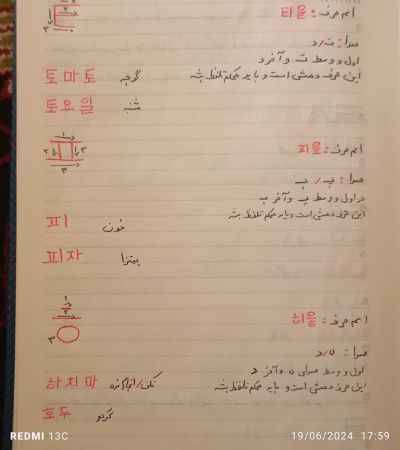 اسم حرف: 티읕
صدا: ت/د
اول و وسط ت و آخر د
این حرف دمشی است و باید محکم تلفظ بشه
토마토 گوجه
토요일 شنبه
اسم حرف: 피읖
صدا: پ/ب
در اول و وسط پ و آخر ب
این حرف دمشی است و باید محکم تلفظ بشه
피 خون
피자 پیتزا
اسم حرف: 히읗
صدا: ه/د
اول و وسط صدای ه و آخر د
این حرف دمشی است و باید محکم تلفظ بشه
하지마 نکن/انجام نده
호두 گردو
REDMI 13C 19/06/2024 17:59